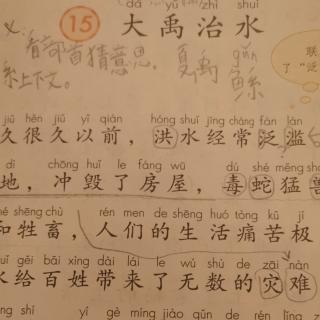 dà yǔ zhì shuǐ
15 大禹治水
看部首猜意思。
系上下文。
夏禹
gǔn
鲧
联
了“泛
jiǔ hěn jiǔ yǐ qián hóng shuǐ jīng cháng fàn làn
久很久以前，洪水经常泛滥
dì chōng huǐ le fáng wū dú shé měng shòu
地，冲毁了房屋，毒蛇猛兽
hé shēng chù rén men de shēng huó tòng kǔ jí
和牲畜，人们的生活痛苦极
shuǐ gěi bǎi xìng dài lái le wú shù de zāi nàn
水给百姓带来了无数的灾难